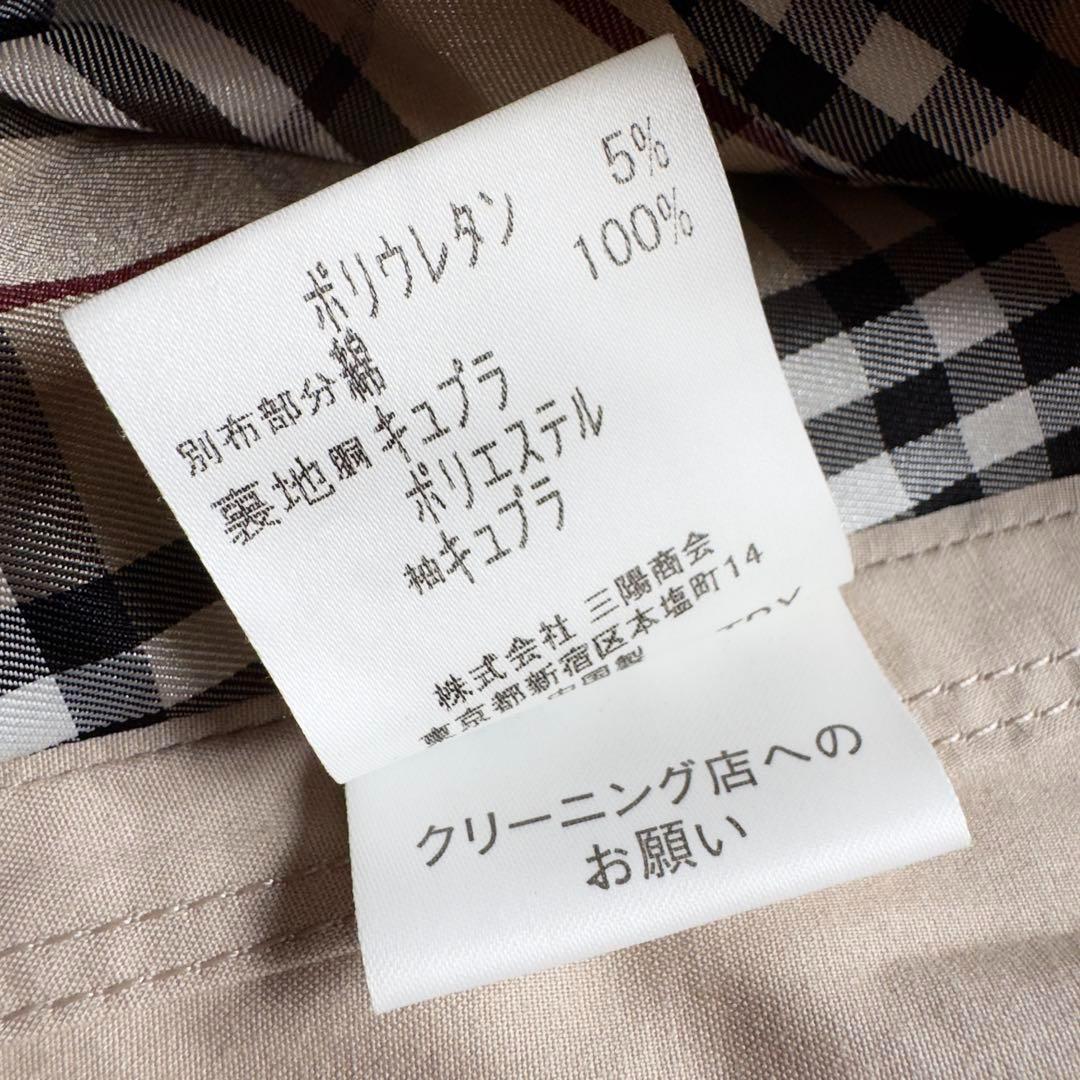 ポリウレタン 5%
別布部分綿 100%
裏地胴キュプラ
ポリエステル
袖キュプラ
株式会社 三陽商会
東京都新宿区本塩町14
中国製
クリーニング店への
お願い